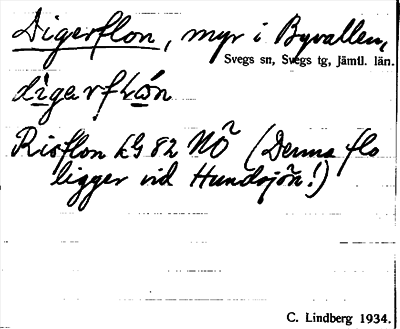 Digerflon, myr i Byvallen,
Svegs sn, Svegs tg, Jämtl. län.
Risflon LG 82 NÖ (Denna flo
ligger vid Hundsjön!)
C. Lindberg 1934.